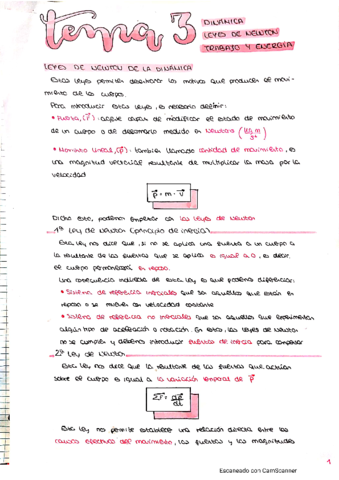 tema 3
DINÁMICA
LEYES DE NEWTON
TRABAJO Y ENERGÍA
LEYES DE NEWTON DE LA DINÁMICA
Estas leyes permiten describir los motivos que producen el movi-
miento de los cuerpos.
Para introducir estas leyes, es necesario definir:
• Fuerza, (F): agente capaz de modificar el estado de movimiento
de un cuerpo o de deformarlo medido en Newtons (kg·m/s²)
• Momento lineal, (p): también llamado cantidad de movimiento, es
una magnitud vectorial resultante de multiplicar la masa por la
velocidad
p = m · v
Dicho esto, podemos empezar con las leyes de Newton
1ª Ley de Newton (principio de inercia)
Esta ley nos dice que, si no se aplica una fuerza a un cuerpo o
la resultante de las fuerzas que se aplica es igual a 0, es decir,
el cuerpo permanecerá en reposo.
Una consecuencia inmediata de esta ley es que podemos diferenciar:
• Sistema de referencia inerciales que son aquellos que están en
reposo o se mueven con velocidad constante
• Sistema de referencia no inerciales que son aquellos que experimentan
algún tipo de aceleración o rotación. En estos, las leyes de Newton
no se cumplen y debemos introducir fuerzas de inercia para compensar
2ª Ley de Newton
Esta ley nos dice que la resultante de las fuerzas que actúan
sobre el cuerpo es igual a la variación temporal de p
ΣF = dp/dt
Esta ley nos permite establecer una relación directa entre las
causas efectivas del movimiento, las fuerzas y las magnitudes
1
Escaneado con CamScanner